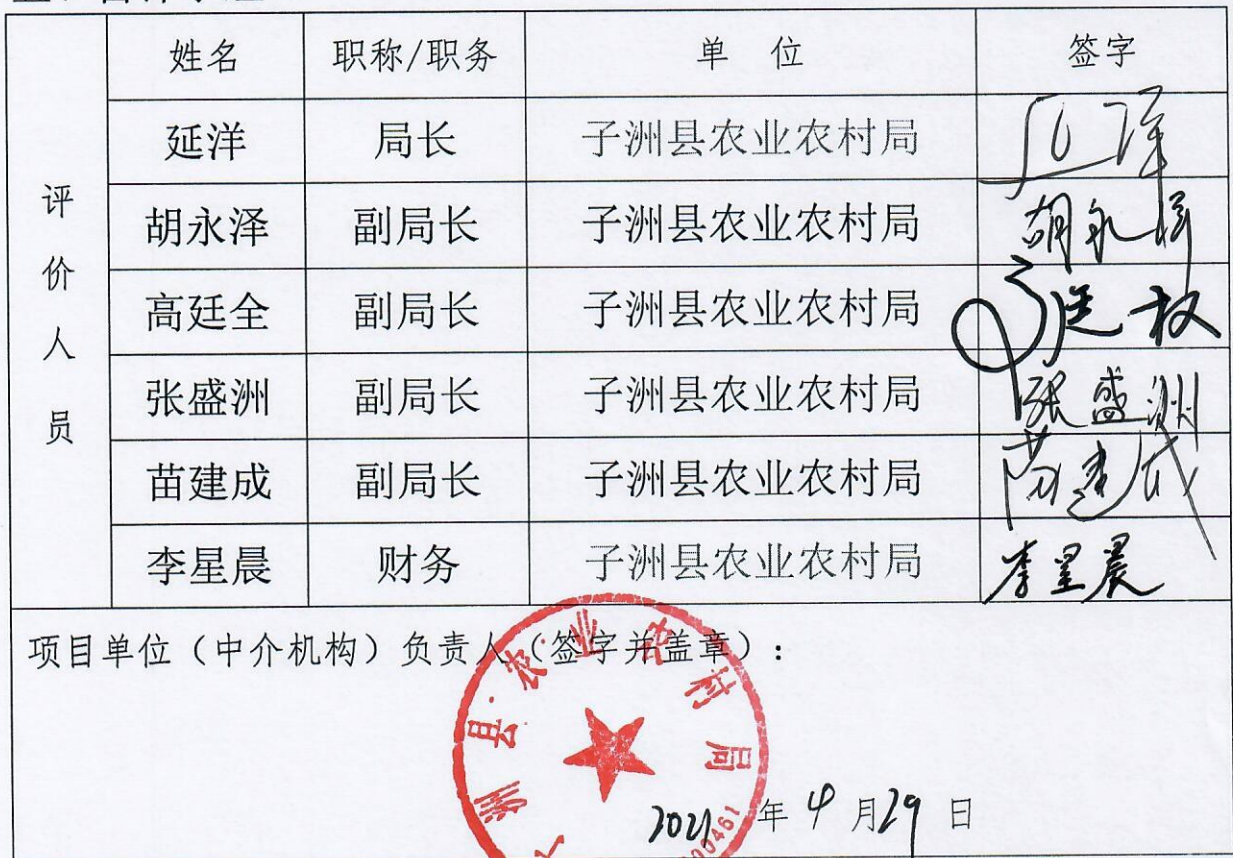 姓名 职称/职务 单 位 签字
延洋 局长 子洲县农业农村局 延洋
胡永泽 副局长 子洲县农业农村局 胡永泽
高廷全 副局长 子洲县农业农村局 高廷权
张盛洲 副局长 子洲县农业农村局 张盛洲
苗建成 副局长 子洲县农业农村局 苗建成
李星晨 财务 子洲县农业农村局 李星晨
评价人员
项目单位（中介机构）负责人（签字并盖章）：
洲县农业农村局
2021 年 4 月 29 日